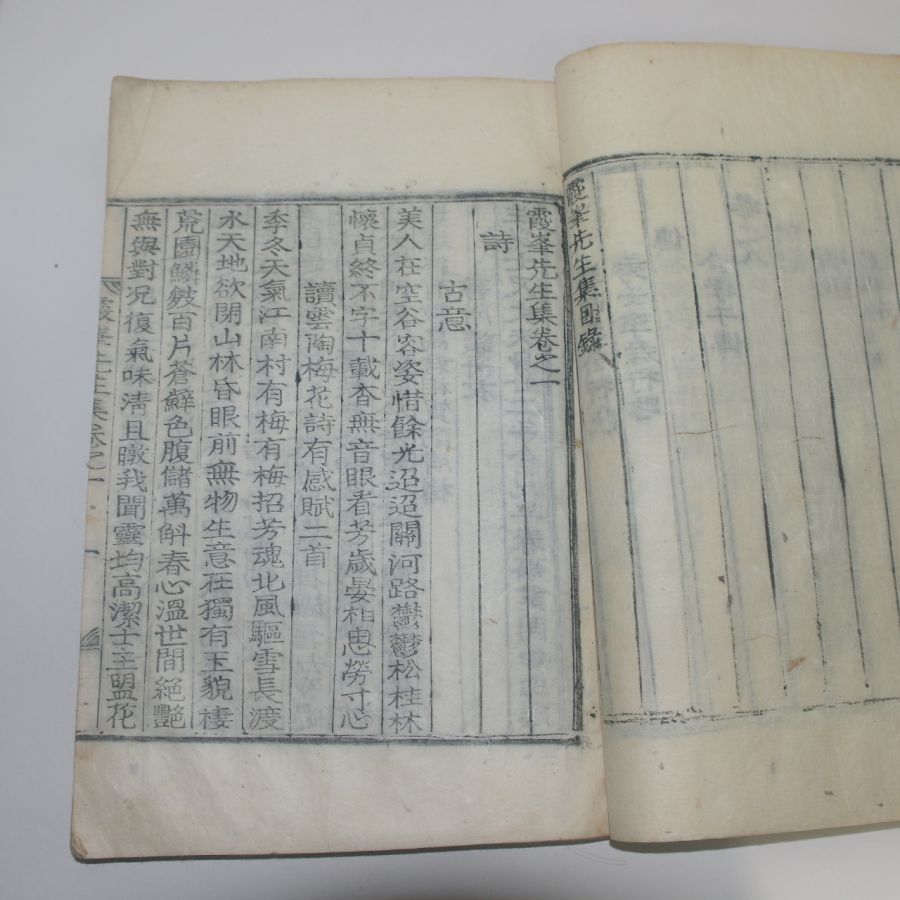 霞峯先生集目錄
霞峯先生集卷之一
詩
古意
美人在空谷容姿惜餘光迢迢關河路鬱鬱松桂林
懷貞終不字十載杳無音眼看芳歲晏相思勞寸心
讀雲陶梅花詩有感賦二首
季冬天氣江南村有梅有梅招芳魂北風驅雪長渡
水天地欲閉山林昏眼前無物生意在獨有玉貌棲
荒園鱗皴百片蒼蘚色腹儲萬斛春心溫世間絶艶
無與對况復氣味淸且暾我聞靈均高潔士主盟花
霞峯先生集卷之一 一